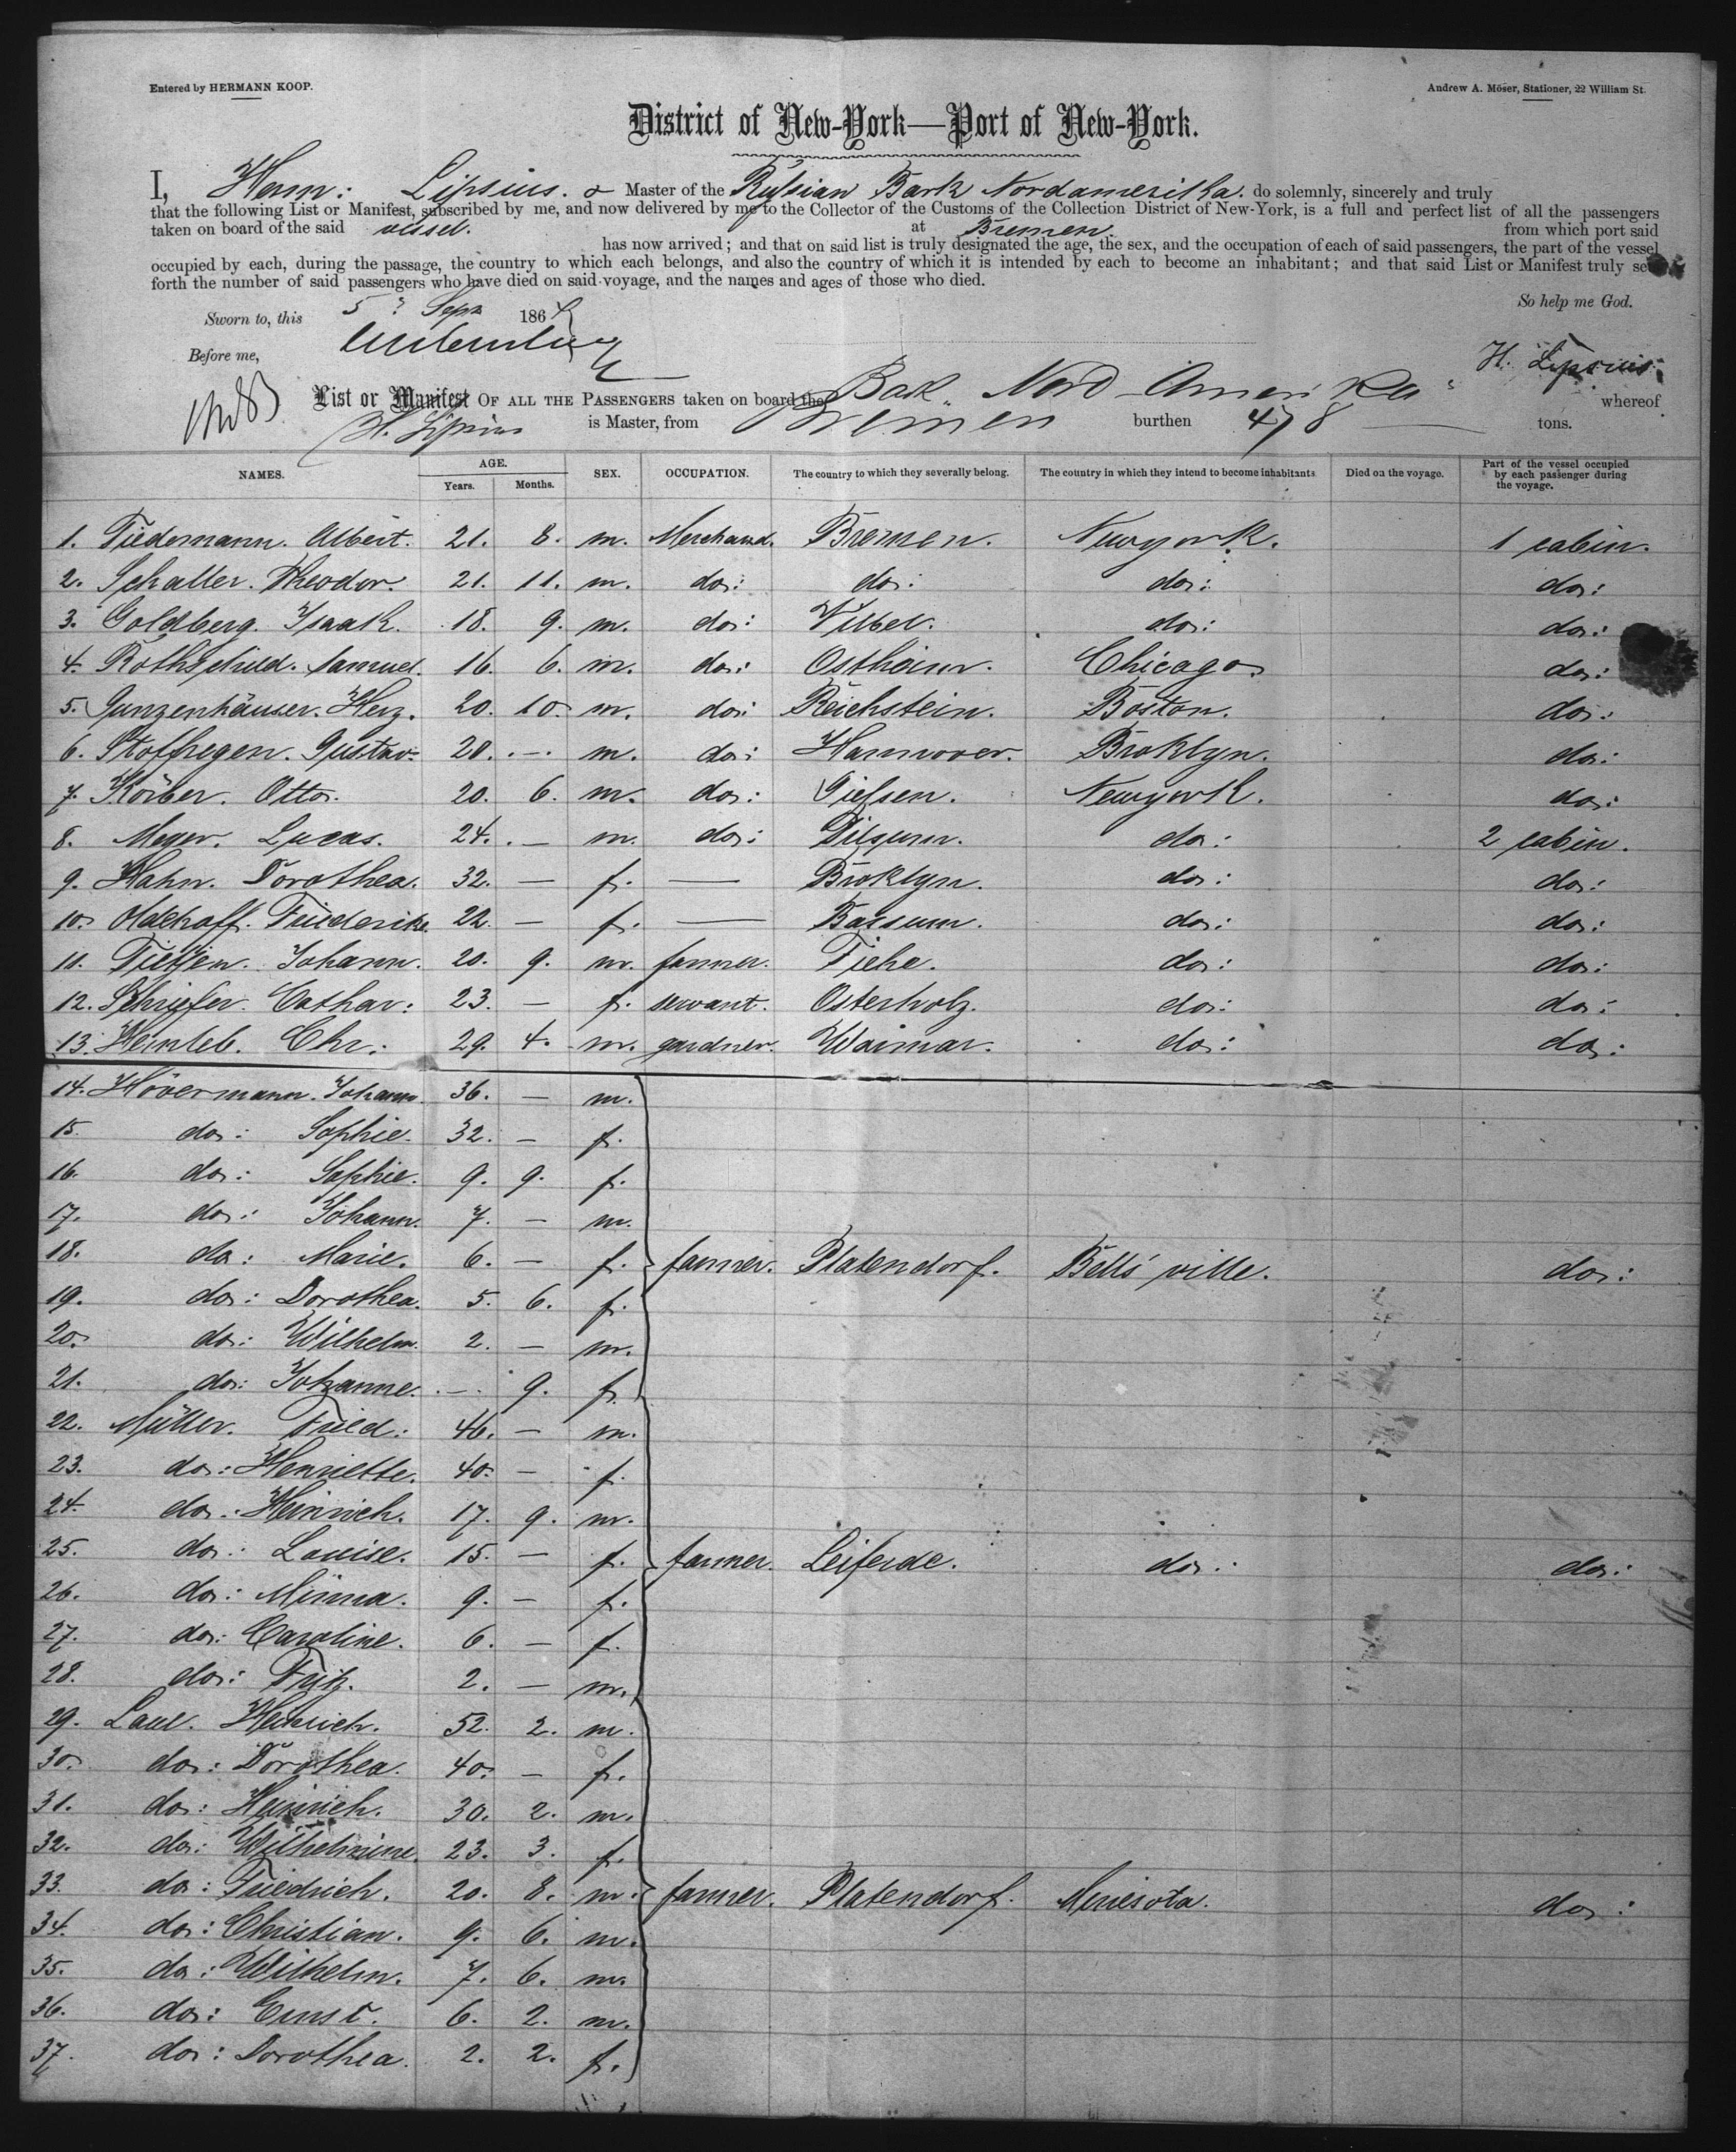 Entered by HERMANN KOOP.
Andrew A. Möser, Stationer, 22 William St.
District of New-York—Port of New-York.
I, Herm: Lipsius. Master of the Russian Bark Nordamerika. do solemnly, sincerely and truly
that the following List or Manifest, subscribed by me, and now delivered by me to the Collector of the Customs of the Collection District of New-York, is a full and perfect list of all the passengers
taken on board of the said vessel. at Bremen. from which port said
has now arrived; and that on said list is truly designated the age, the sex, and the occupation of each of said passengers, the part of the vessel
occupied by each, during the passage, the country to which each belongs, and also the country of which it is intended by each to become an inhabitant; and that said List or Manifest truly set
forth the number of said passengers who have died on said voyage, and the names and ages of those who died.
So help me God.
Sworn to, this 5 Sept 1864
Before me,
H. Lipsius
List or Manifest OF ALL THE PASSENGERS taken on board the Bark Nord-Amerika whereof
H. Lipsius is Master, from Bremen burthen 478 tons.
NAMES. AGE. Years. Months. SEX. OCCUPATION. The country to which they severally belong. The country in which they intend to become inhabitants Died on the voyage. Part of the vessel occupied by each passenger during the voyage.
1. Tiedemann. Albert. 21. 8. m. Merchand. Bremen. Newyork. 1 cabin.
2. Schaller. Theodor. 21. 11. m. do: do: do: do:
3. Goldberg. Isaak. 18. 9. m. do: Vilbel. do: do:
4. Rothschild. Samuel. 16. 6. m. do: Ostheim. Chicago. do:
5. Gunzenhäuser. Herz. 20. 10. m. do: Reichstein. Boston. do:
6. Stoffregen. Gustav. 20. — m. do: Hannover. Broklyn. do:
7. Körber. Otto. 20. 6. m. do: Giessen. Newyork. do:
8. Meyer. Lucas. 24. — m. do: Pilsum. do: 2 cabin.
9. Hahn. Dorothea. 32. — f. — Broklyn. do: do:
10. Oldehoff. Friederike. 22. — f. — Bassum. do: do:
11. Tietjen. Johann. 20. 9. m. farmer. do: do:
12. Cathar: 23. — f. servant. Osterholz. do: do:
13. Heinleb. Chr: 29. 4. m. gardner. Waimar. do: do:
14. Hövermann. Johann. 36. — m.
15. do: Sophie. 32. — f.
16. do: Sophie. 9. 9. f.
17. do: Johann. 7. — m.
18. do: Marie. 6. — f. farmer. Platendorf. Bells ville. do:
19. do: Dorothea. 5. 6. f.
20. do: Wilhelm. 2. — m.
21. do: Johanne. — 9. f.
22. Müller. Fried: 46. — m.
23. do: Henriette. 40. — f.
24. do: Heinrich. 17. 9. m.
25. do: Louise. 15. — f. farmer. Leiferde. do: do:
26. do: Minna. 9. — f.
27. do: Caroline. 6. — f.
28. do: Fritz. 2. — m.
29. Laue. Heinrich. 52. 2. m.
30. do: Dorothea. 40. — f.
31. do: Heinrich. 30. 2. m.
32. do: Wilhelmine. 23. 3. f.
33. do: Friedrich. 20. 8. m. farmer. Platendorf. Minesota. do:
34. do: Christian. 9. 6. m.
35. do: Wilhelm. 7. 6. m.
36. do: Ernst. 6. 2. m.
37. do: Dorothea. 2. 2. f.